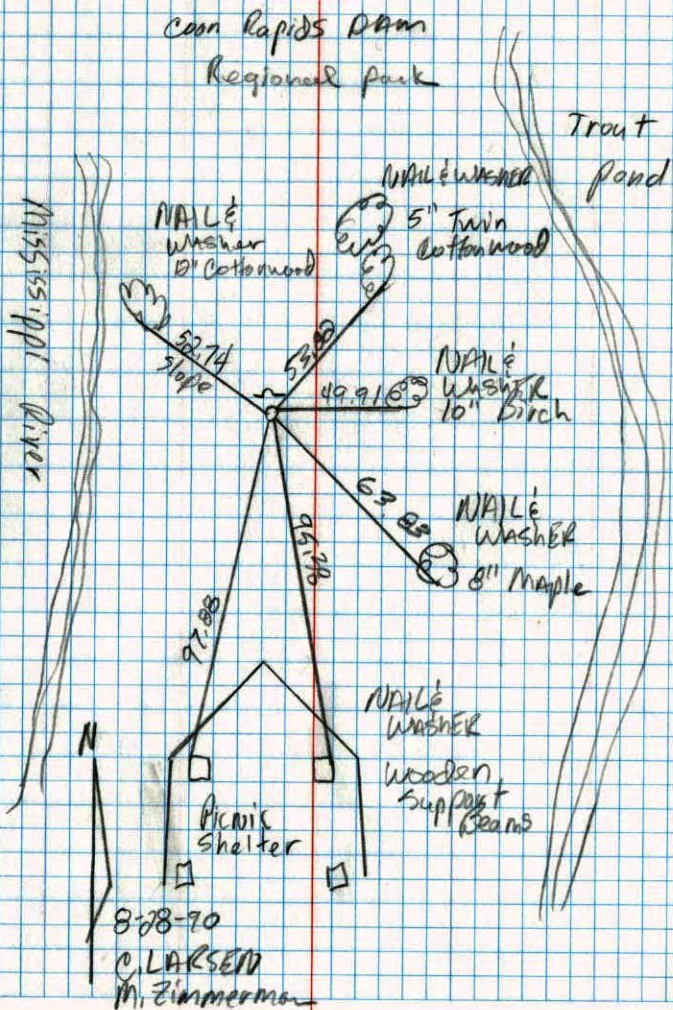 Coon Rapids Dam
Regional park
Trout
Pond
Mississippi River
NAIL &
Washer
12" Cottonwood
NAIL & WASHER
5" Twin
Cottonwood
52.74
slope
49.91
NAIL &
WASHER
10" Birch
63.83
NAIL &
WASHER
8" Maple
97.88
NAIL &
WASHER
Wooden
Support
Beams
N
Picnic
Shelter
8-28-90
C. LARSEN
M. Zimmerman